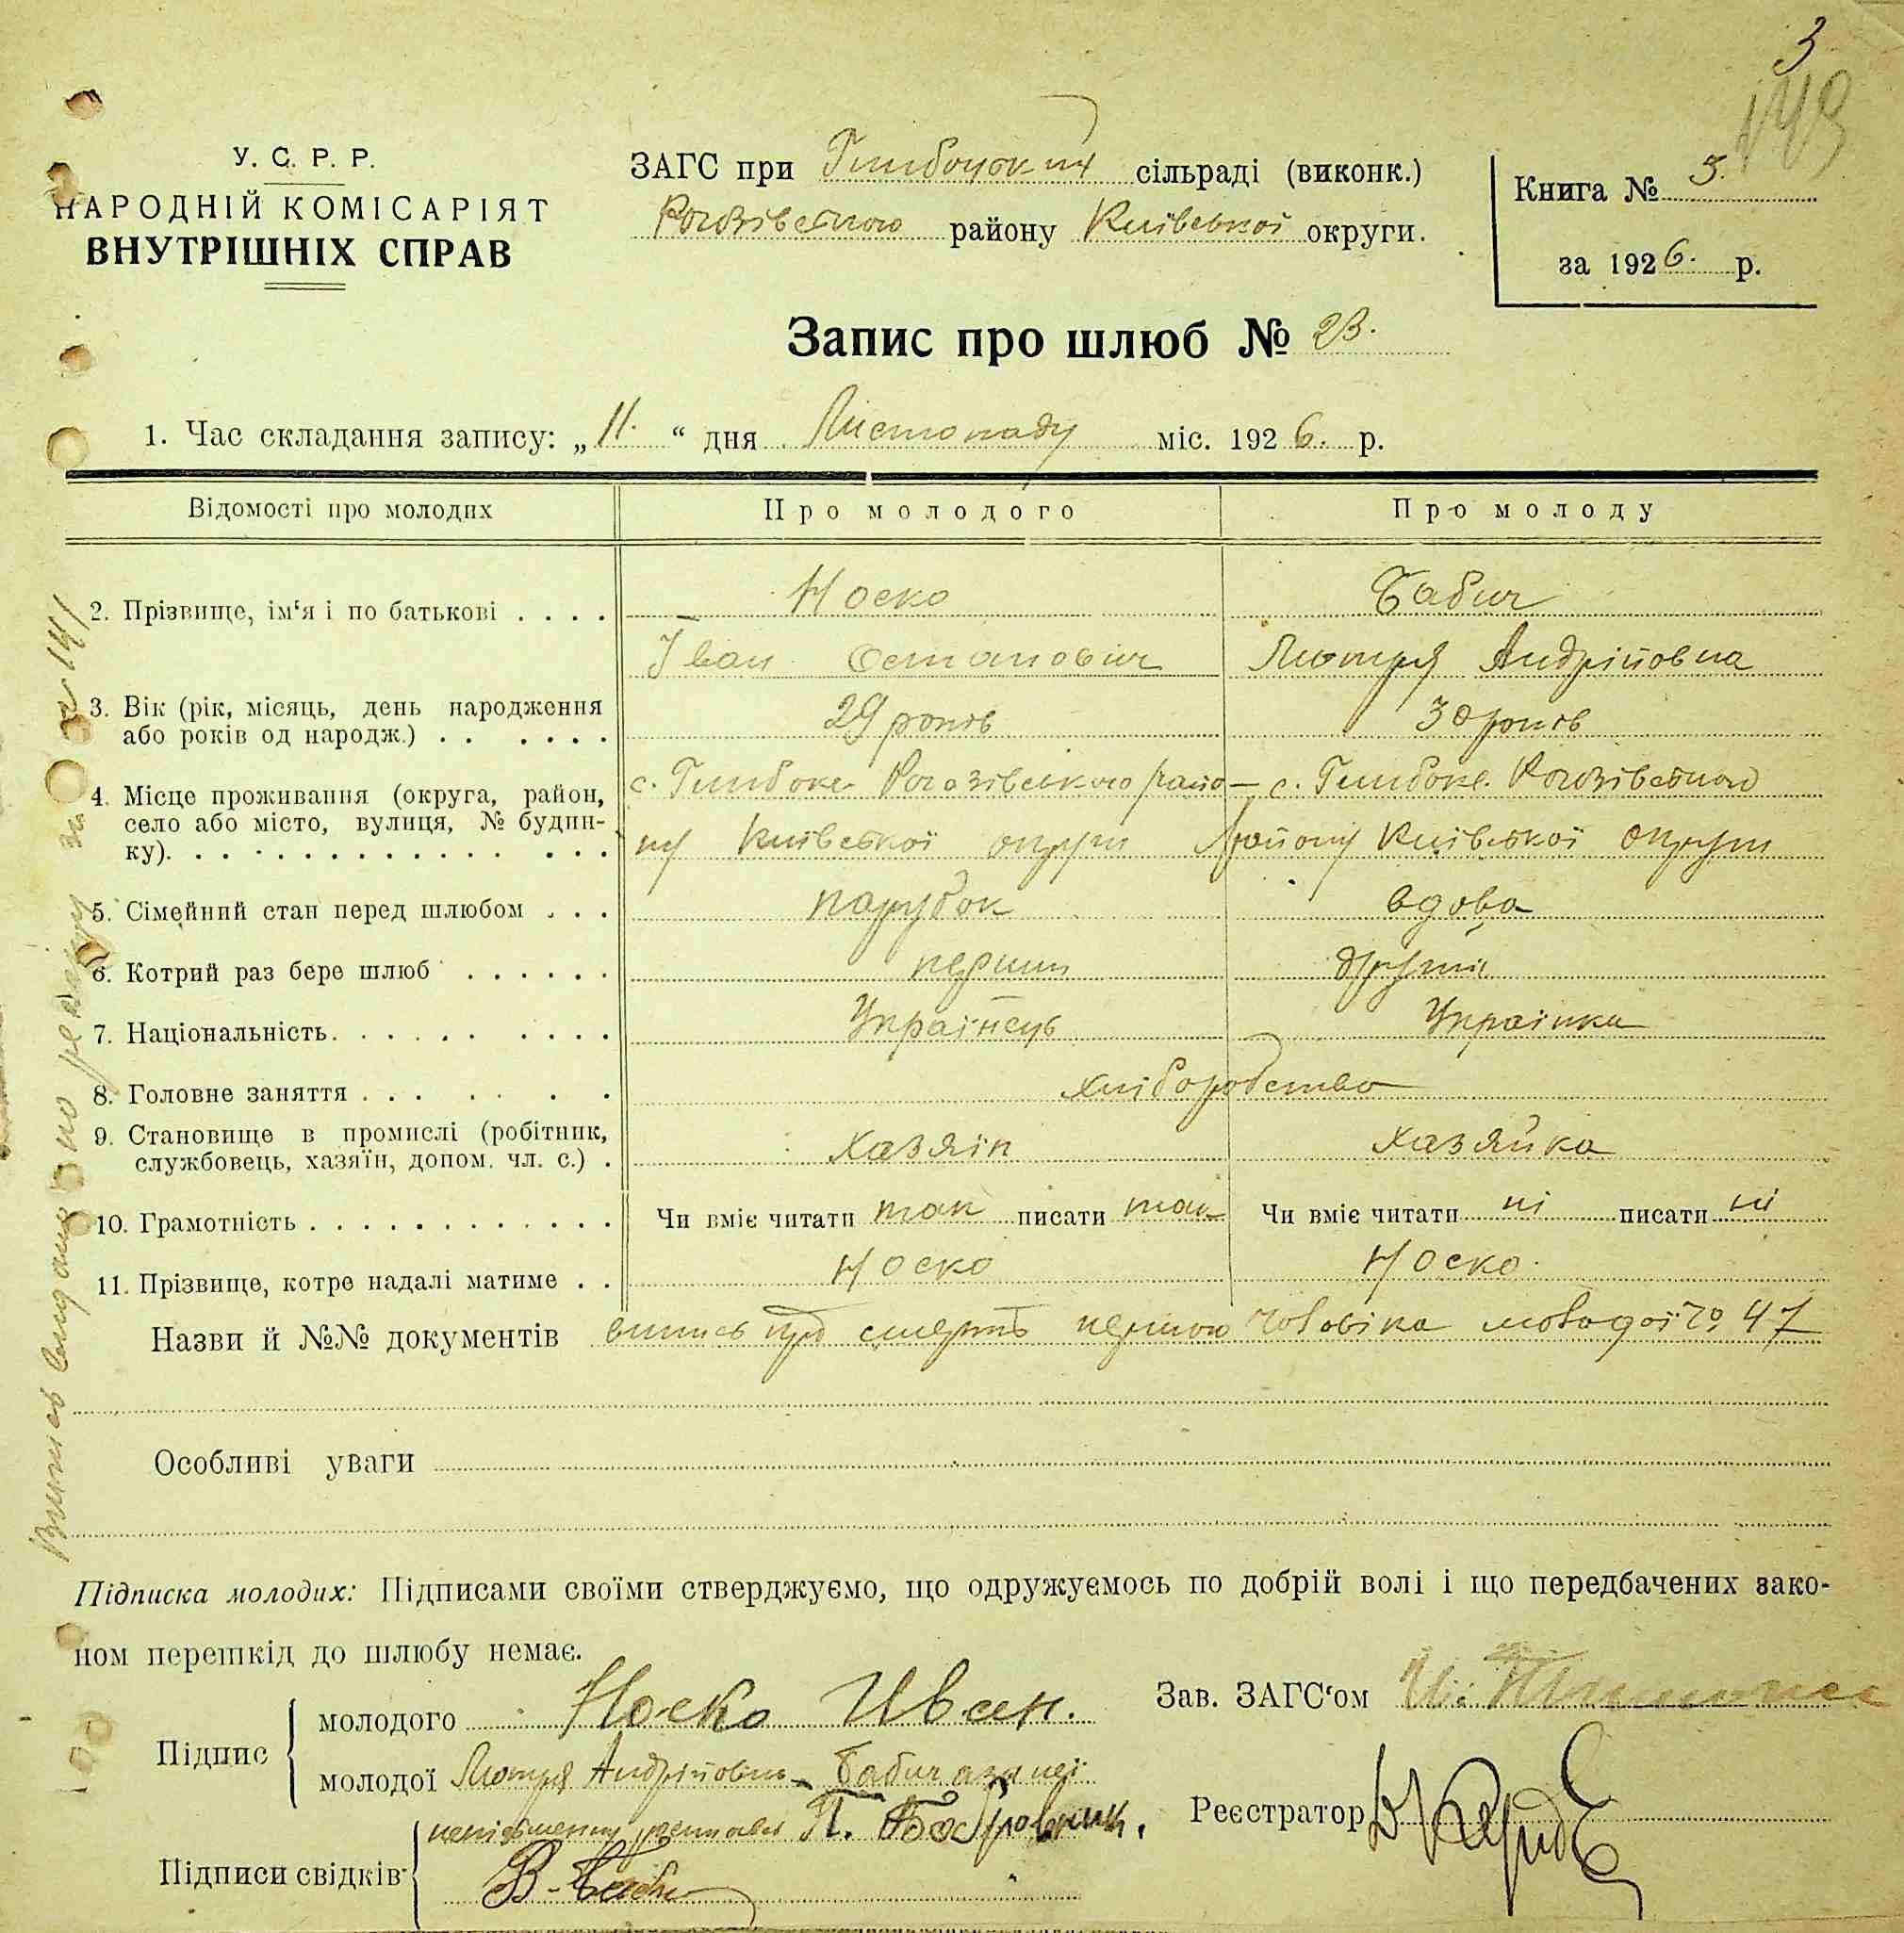 3
143
У. С. Р. Р.
НАРОДНІЙ КОМІСАРІЯТ
ВНУТРІШНІХ СПРАВ
ЗАГС при Глибоцькій сільраді (виконк.)
Рогозівського району Київської округи.
Книга № 3.
за 1926. р.
Запис про шлюб № 23.
1. Час складання запису: „11.“ дня Листопаду міс. 1926. р.
Відомості про молодих Про молодого Про молоду
2. Прізвище, ім‘я і по батькові . . . . Носко Бабич
Іван Остапович Мотря Андрійовна
3. Вік (рік, місяць, день народження
або років од народж.) . . . . . . 29 років 30 років
4. Місце проживання (округа, район,
село або місто, вулиця, № будин-
ку). . . . . . . . . . . . . . .
с. Глибоке Рогозівського райо-
ну Київської округи
с. Глибоке Рогозівського
району Київської округи
5. Сімейний стан перед шлюбом . . . парубок вдова
6. Котрий раз бере шлюб . . . . . . перший другий
7. Національність. . . . . . . . . . Українець Українка
8. Головне заняття . . . . . . . хліборобство
9. Становище в промислі (робітник,
службовець, хазяїн, допом. чл. с.) . хазяїн хазяйка
10. Грамотність . . . . . . . . . . . . . Чи вміє читати так писати так Чи вміє читати ні писати ні
11. Прізвище, котре надалі матиме . . Носко Носко.
Назви й №№ документів випись про смерть першого чоловіка молодої № 47
Особливі уваги
Підписка молодих: Підписами своїми стверджуємо, що одружуємось по добрій волі і що передбачених зако-
ном перешкід до шлюбу немає.
Підпис
молодого Носко Иван.
молодої Мотря Андрійовна Бабич а за неї
неписьменну розписався П. Бобровник.
Підписи свідків
В. Бабич
Зав. ЗАГС‘ом
Реєстратор
Випись видана по за № 141